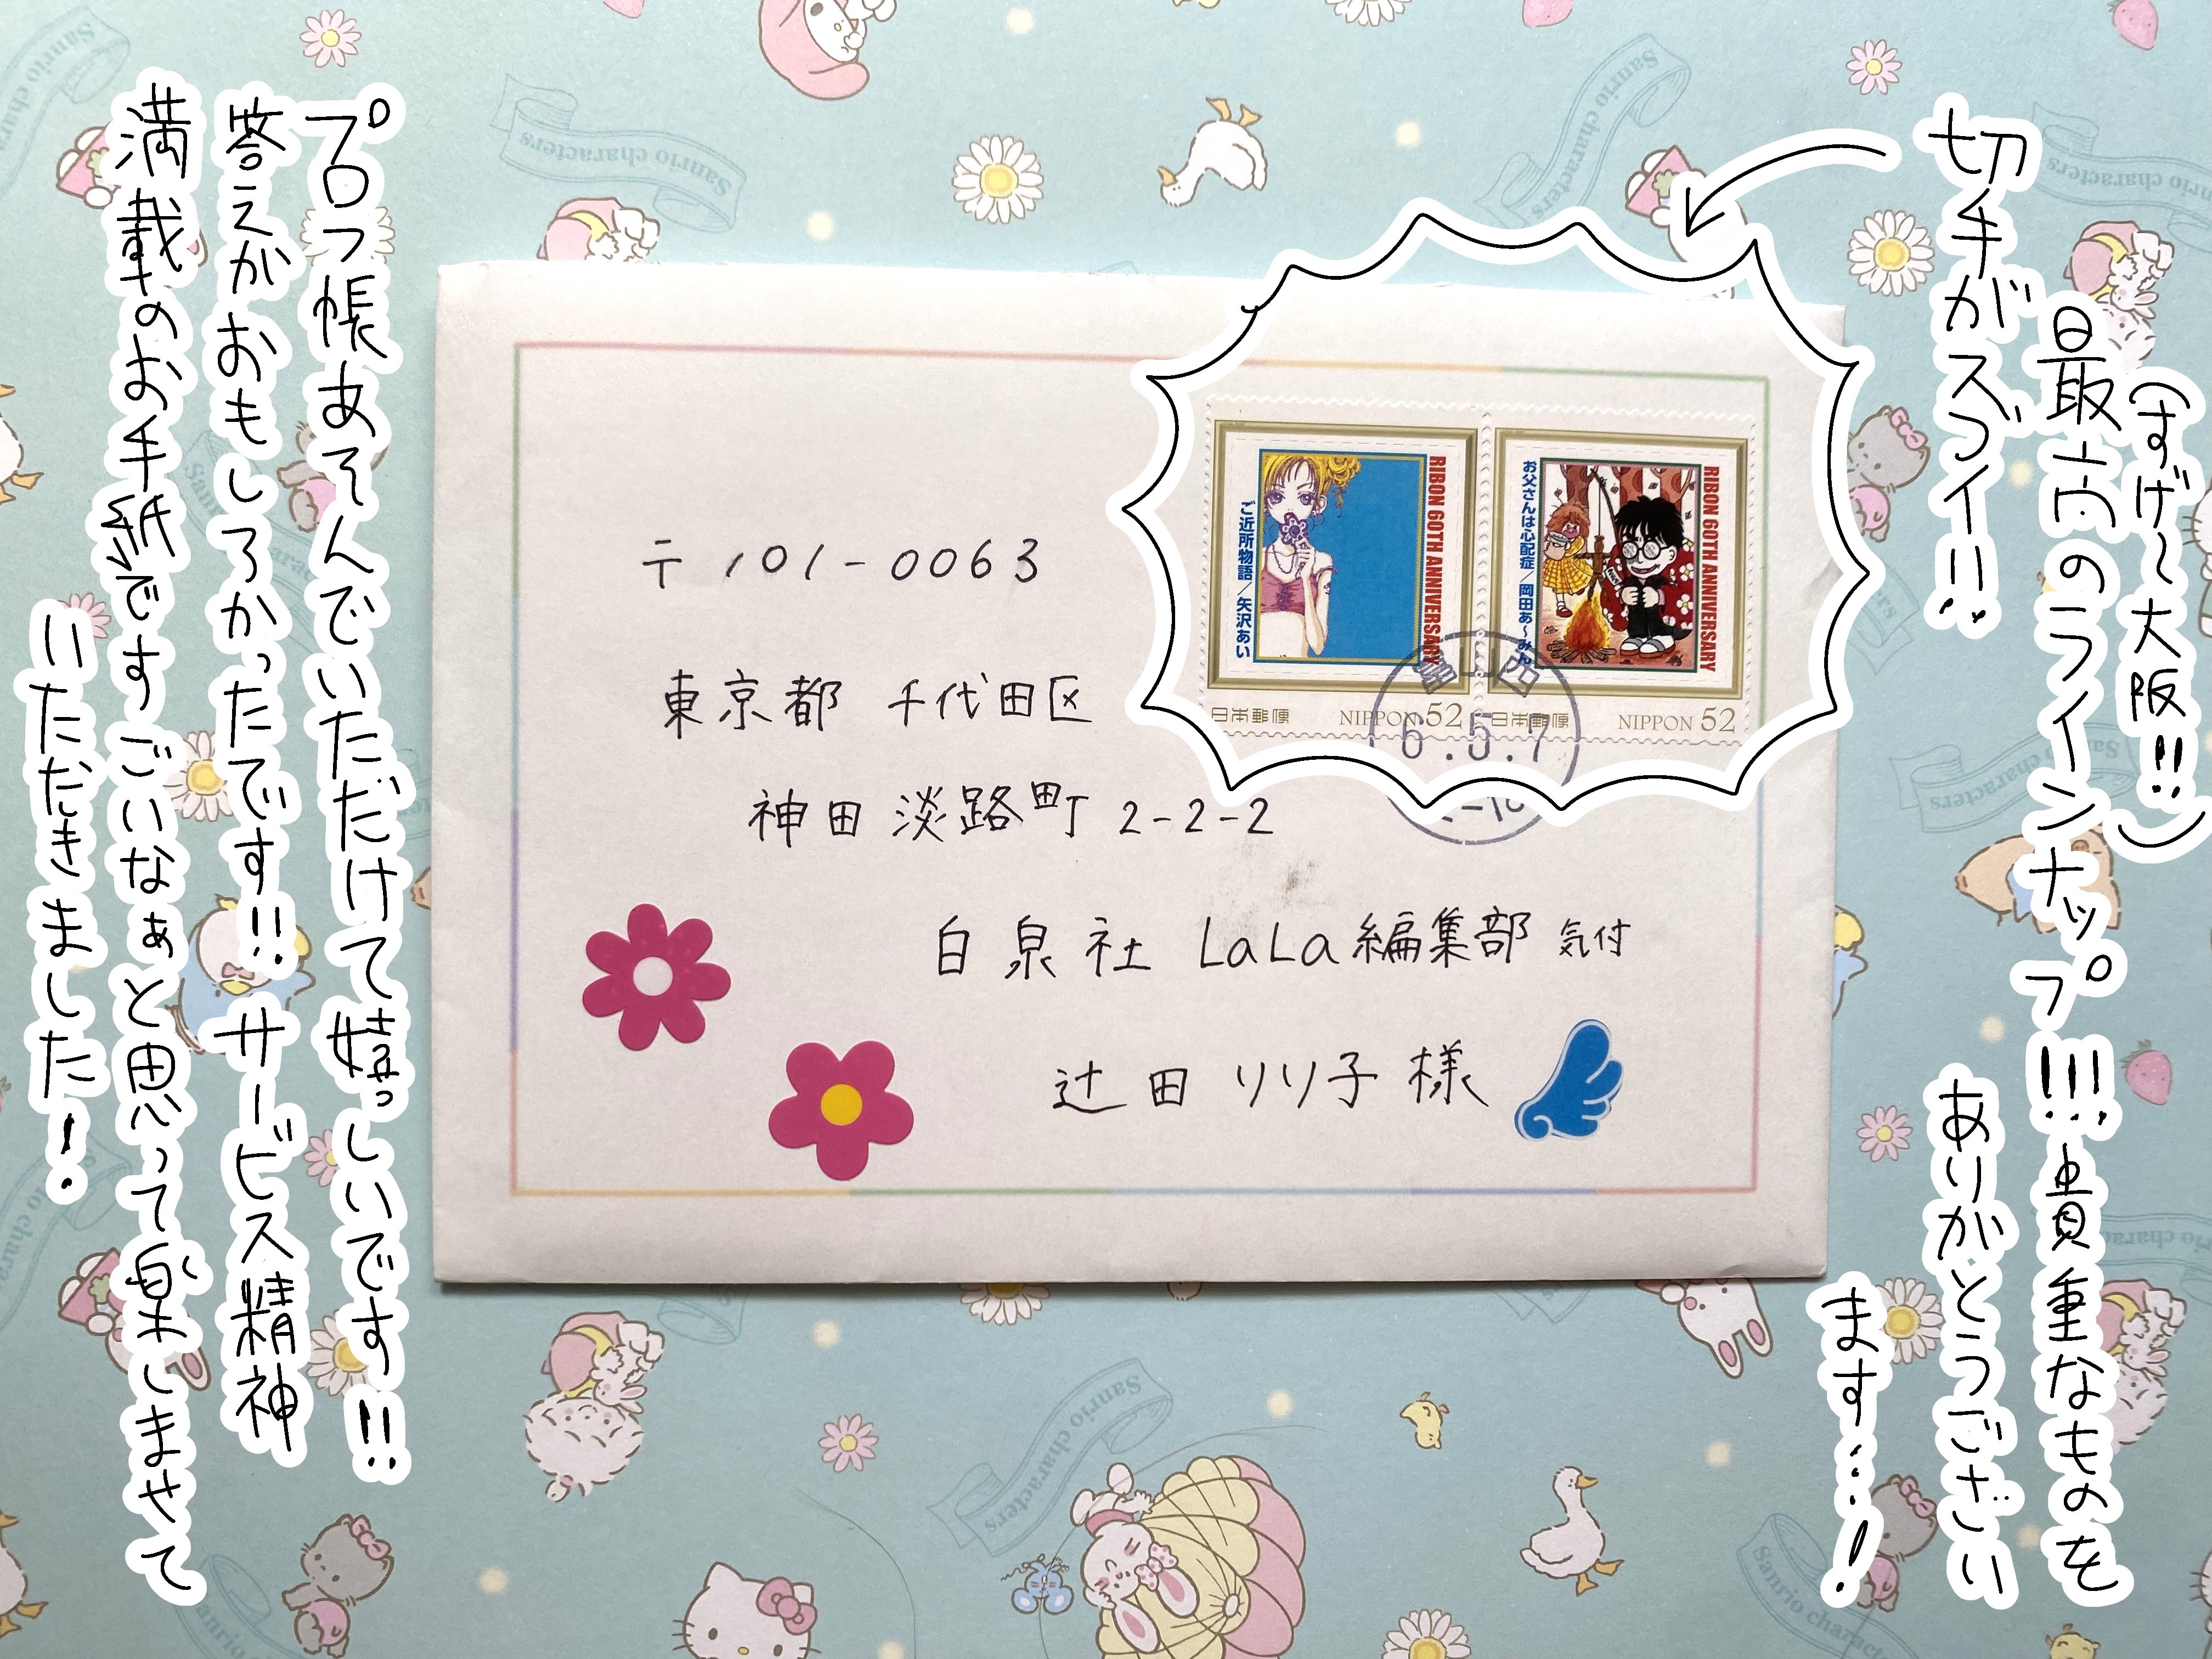 切手がスゴイ!!
(すげ〜大阪!!)
最高のラインナップ!!! 貴重なものを
ありがとうござい
ます…!
RIBON 60TH ANNIVERSARY
ご近所物語/矢沢あい
日本郵便 NIPPON 52
RIBON 60TH ANNIVERSARY
お父さんは心配症/岡田あ〜みん
日本郵便 NIPPON 52
6.5.7
〒101-0063
東京都 千代田区
神田淡路町 2-2-2
白泉社 LaLa編集部 気付
辻田りり子 様
プロフ帳あそんでいただけて嬉っしいです!!
答えがおもしろかったです!! サービス精神
満載のお手紙ですごいなぁと思って楽しませて
いただきました!
Sanrio characters
Sanrio characters
Sanrio characters
Sanrio characters
Sanrio characters
Sanrio characters